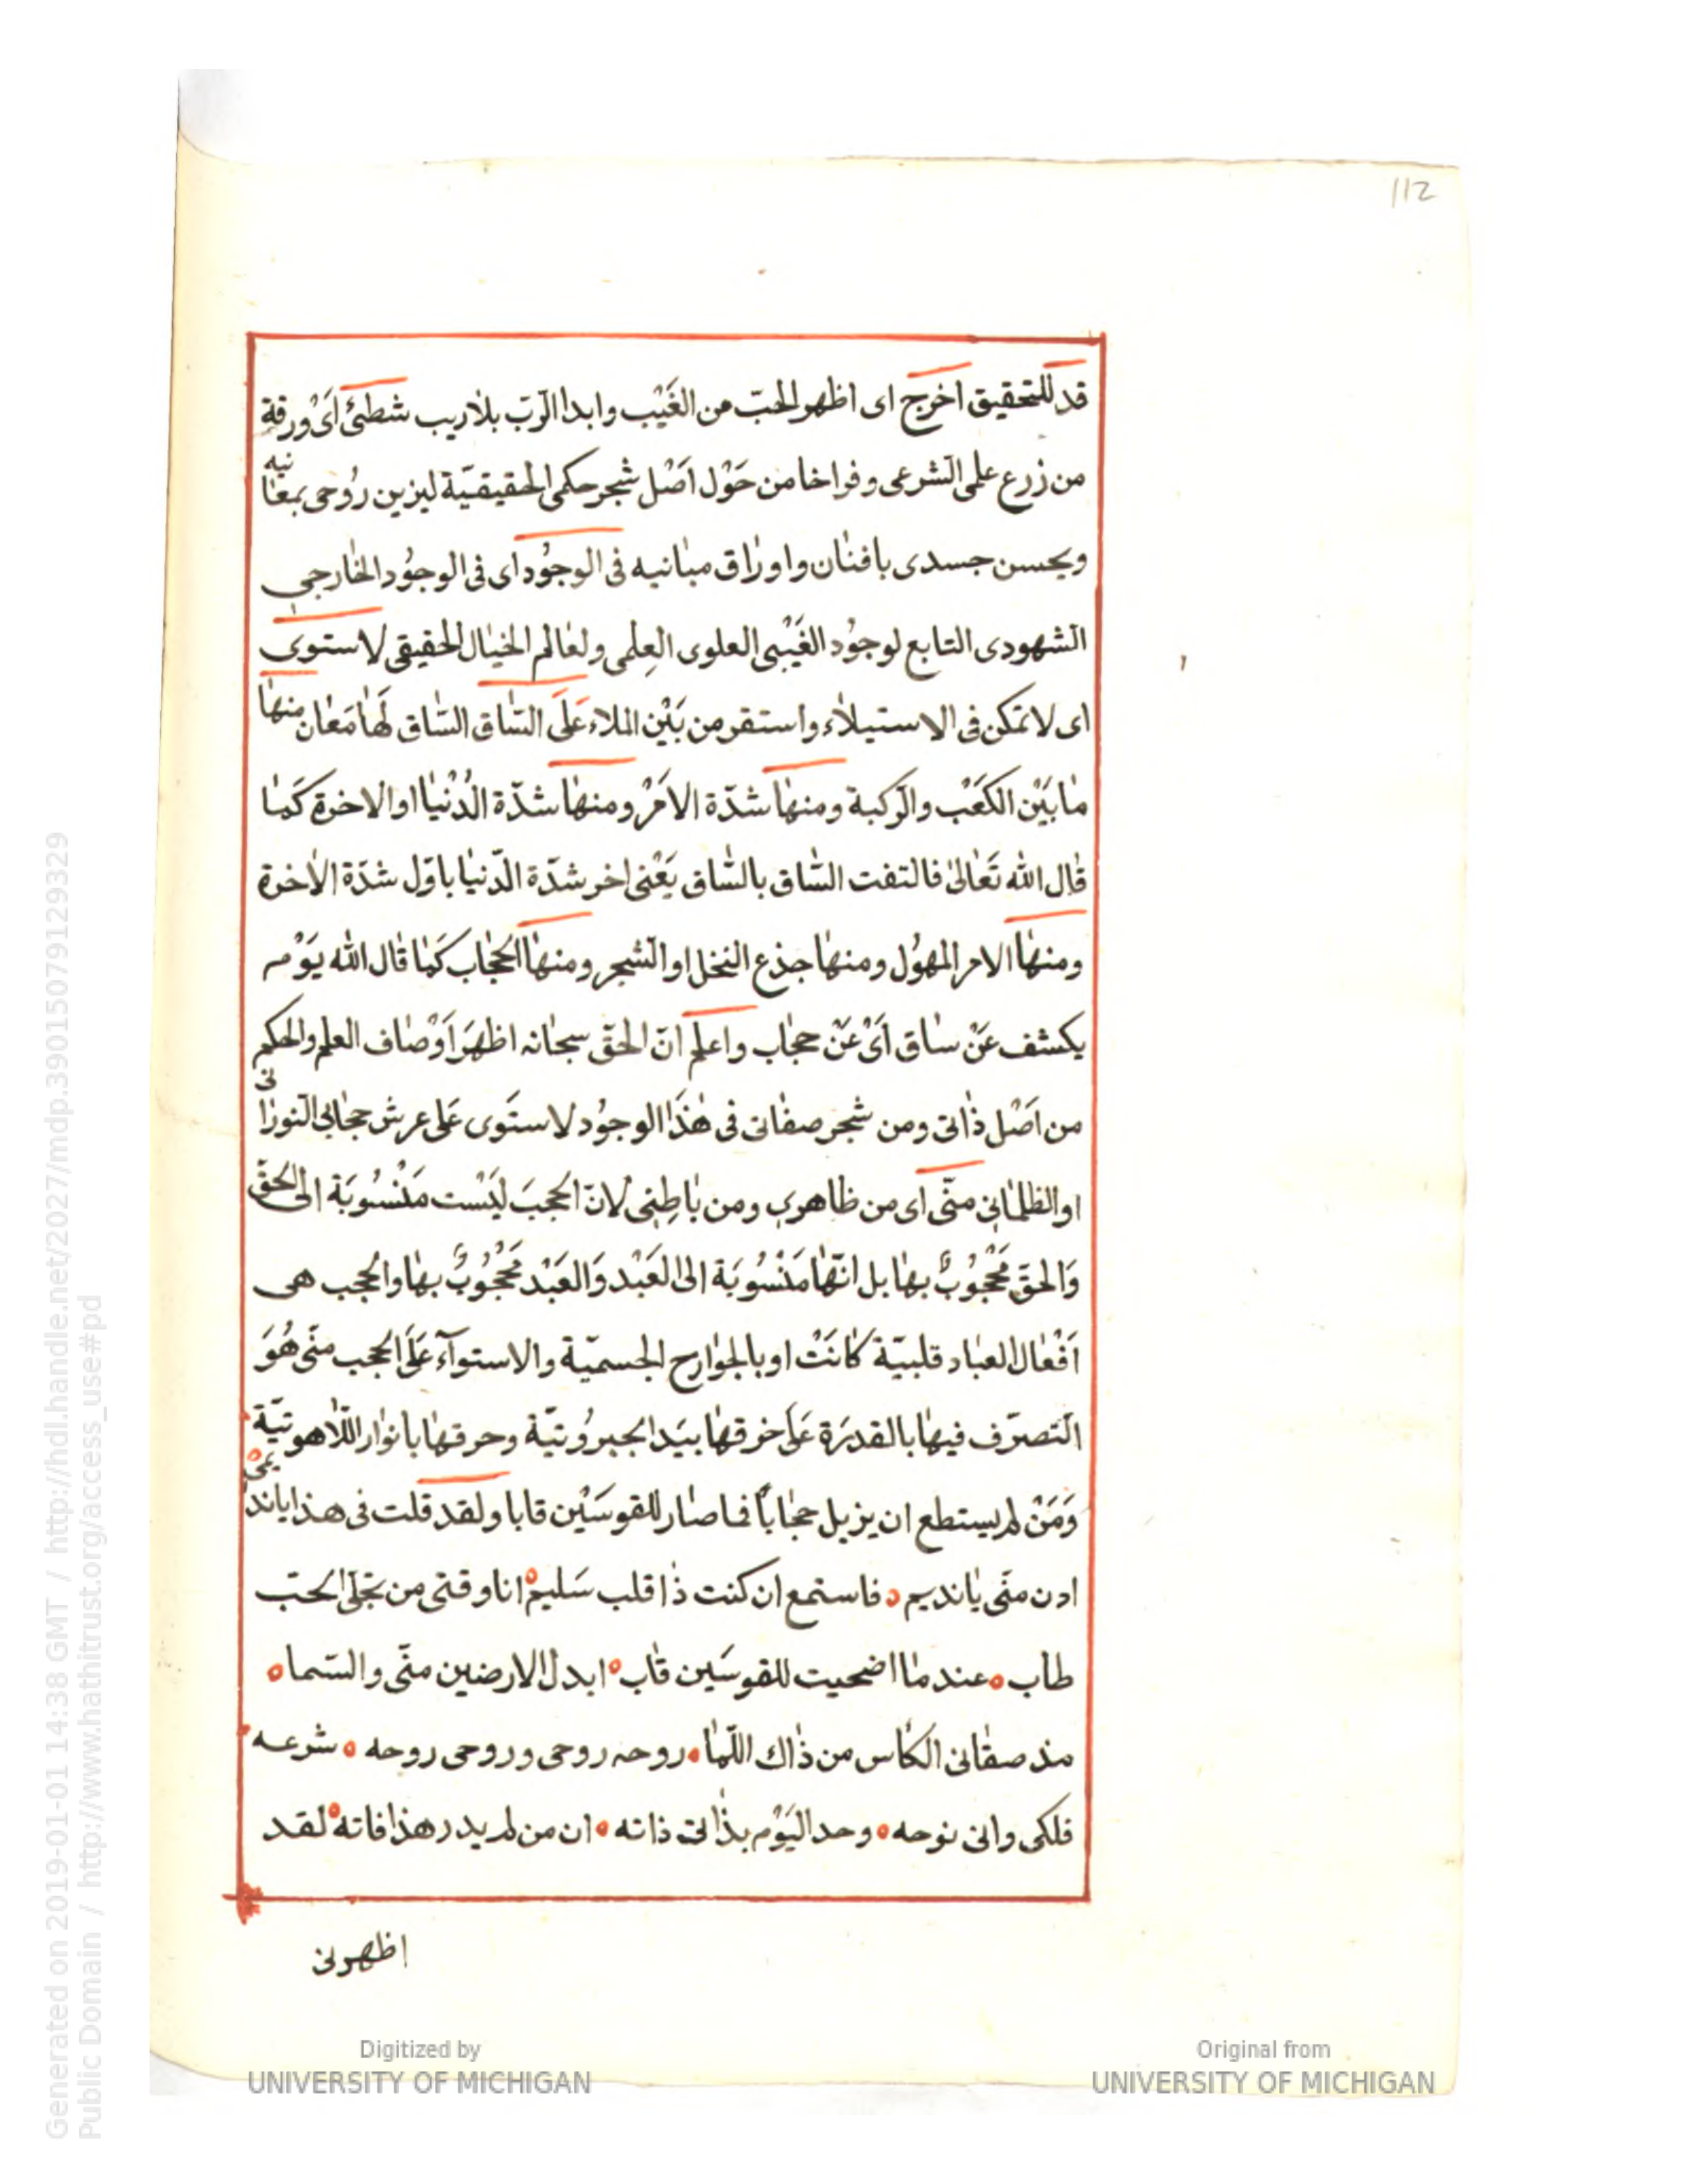 112
قد للتحقيق اخرج اى اظهر الحبّ من الغَيْب وابدا الرّبّ بلا ريب شطئ اَىْ ورقة
من زرع علمى الشّرعى وفراخا من حَوْل اَصْل شجر حكمى الحقيقيّة ليزين رُوحى بمعانيه
ويحسن جسدى بافنان واوراق مبانيه فى الوجُود اى فى الوجُود الخارجى
الشّهودى التابع لوجوُد الغَيْبى العلوى العِلمى ولعَالم الخيال الحقيقى لاستوى
اى لا تمكن فى الاستيلاء واستقر من بَيْن الملاء عَلَى السّاق السّاق لَهَا مَعَان منها
مابَيْن الكَعْب والرّكبة ومنها شدّة الاَمْر ومنها شدّة الدُنْيَا او الاخرة كَمَا
قال الله تَعَالى فالتفت السّاق بالسّاق يَعْنى اخر شدّة الدّنيا باوّل شدّة الاخرة
ومنها الامر المهوُل ومنها جذع النخل او الشّجر ومنها الحجاب كَمَا قال الله يَوْم
يكشف عَنْ ساق اَىْ عَنْ حجاب واعلم انّ الحقّ سبحانه اظهَرَ اَوْصاف العلم والحكم
من اَصْل ذاتى ومن شجر صفاتى فى هٰذَا الوجوُد لاستَوى عَلى عرش حجابى النورانى
او الظلمانى منّى اى من ظاهرى ومن باطِنِى لانّ الحجبَ ليَْست مَنْسُوبَة الى الحقّ
وَالحقّ مَحْجُوبٌ بها بل انّها مَنْسُوبَة الى العَبْد وَالعَبْد مَحْجُوبٌ بها والحجب هى
اَفْعَال العباد قلبيّة كانَتْ او بالجوارح الجسميّة والاستوآء عَلَى الحجب منّى هُوَ
التّصرّف فيها بالقدرَة عَلى خرقها بيَد الجبروُتيّة وحرقها بانوار اللاّهوتيّة
وَمَنْ لم يستطع ان يزيل حجاباً فما صار للقوسَيْن قابا ولقد قلت فى هذا ياندىمى
ادن منّى يانديم فاستمع ان كنت ذا قلب سَليم انا وقتى من تجلّى الحبّ
طاب عندما اضحيت للقوسَين قاب ابدل الارضين منّى والسّما
مذ سقانى الكاس من ذاك اللّما روحه روحى وروحى روحه شرعه
فلكى وانى نوحه وحد اليَوْم بذاتى ذاته ان من لم يدر هذا فاته لقد
اظهرنى
Digitized by
UNIVERSITY OF MICHIGAN
Original from
UNIVERSITY OF MICHIGAN
Generated on 2019-01-01 14:38 GMT / http://hdl.handle.net/2027/mdp.39015079129329
Public Domain / http://www.hathitrust.org/access_use#pd